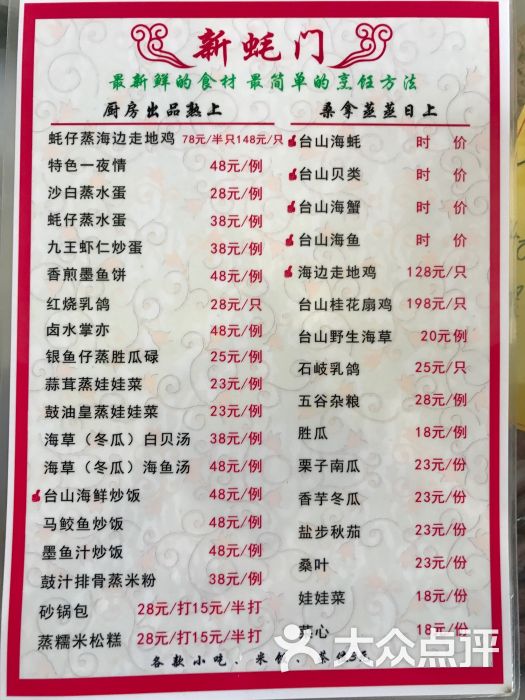 新蚝门
最新鲜的食材 最简单的烹饪方法
厨房出品熟上
蚝仔蒸海边走地鸡 78元/半只148元/只
特色一夜情 48元/例
沙白蒸水蛋 28元/例
蚝仔蒸水蛋 38元/例
九王虾仁炒蛋 38元/例
香煎墨鱼饼 48元/例
红烧乳鸽 28元/只
卤水掌亦 48元/例
银鱼仔蒸胜瓜碌 25元/例
蒜茸蒸娃娃菜 23元/例
鼓油皇蒸娃娃菜 23元/例
海草（冬瓜）白贝汤 38元/例
海草（冬瓜）海鱼汤 48元/例
台山海鲜炒饭 48元/例
马鲛鱼炒饭 48元/例
墨鱼汁炒饭 48元/例
鼓汁排骨蒸米粉 38元/例
砂锅包 28元/打15元/半打
蒸糯米松糕 28元/打15元/半打
桑拿蒸蒸日上
台山海蚝 时 价
台山贝类 时 价
台山海蟹 时 价
台山海鱼 时 价
海边走地鸡 128元/只
台山桂花扇鸡 198元/只
台山野生海草 20元例
石岐乳鸽 25元/只
五谷杂粮 28元/例
胜瓜 18元/例
栗子南瓜 23元/份
香芋冬瓜 23元/份
盐步秋茄 23元/份
桑叶 23元/份
娃娃菜 18元/份
心 18元/份
各款小吃、米饭、茶位5元
大众点评